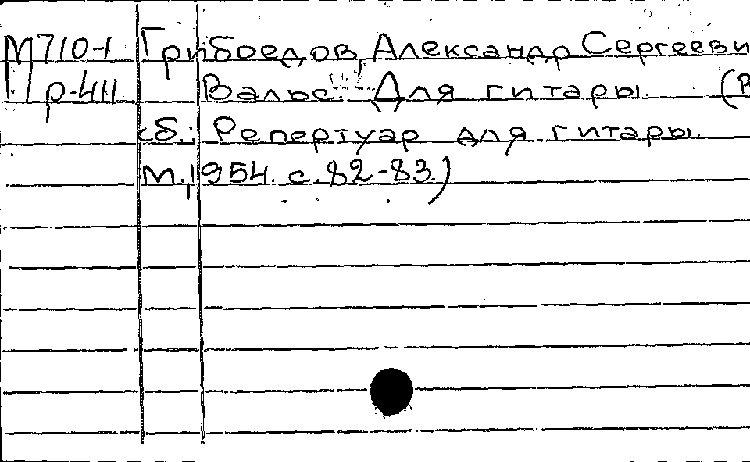 М710-1 Грибоедов, Александр Сергееви
р-411 Вальс. Для гитары. (В
сб.: Репертуар для гитары.
М., 1954. с. 82-83)